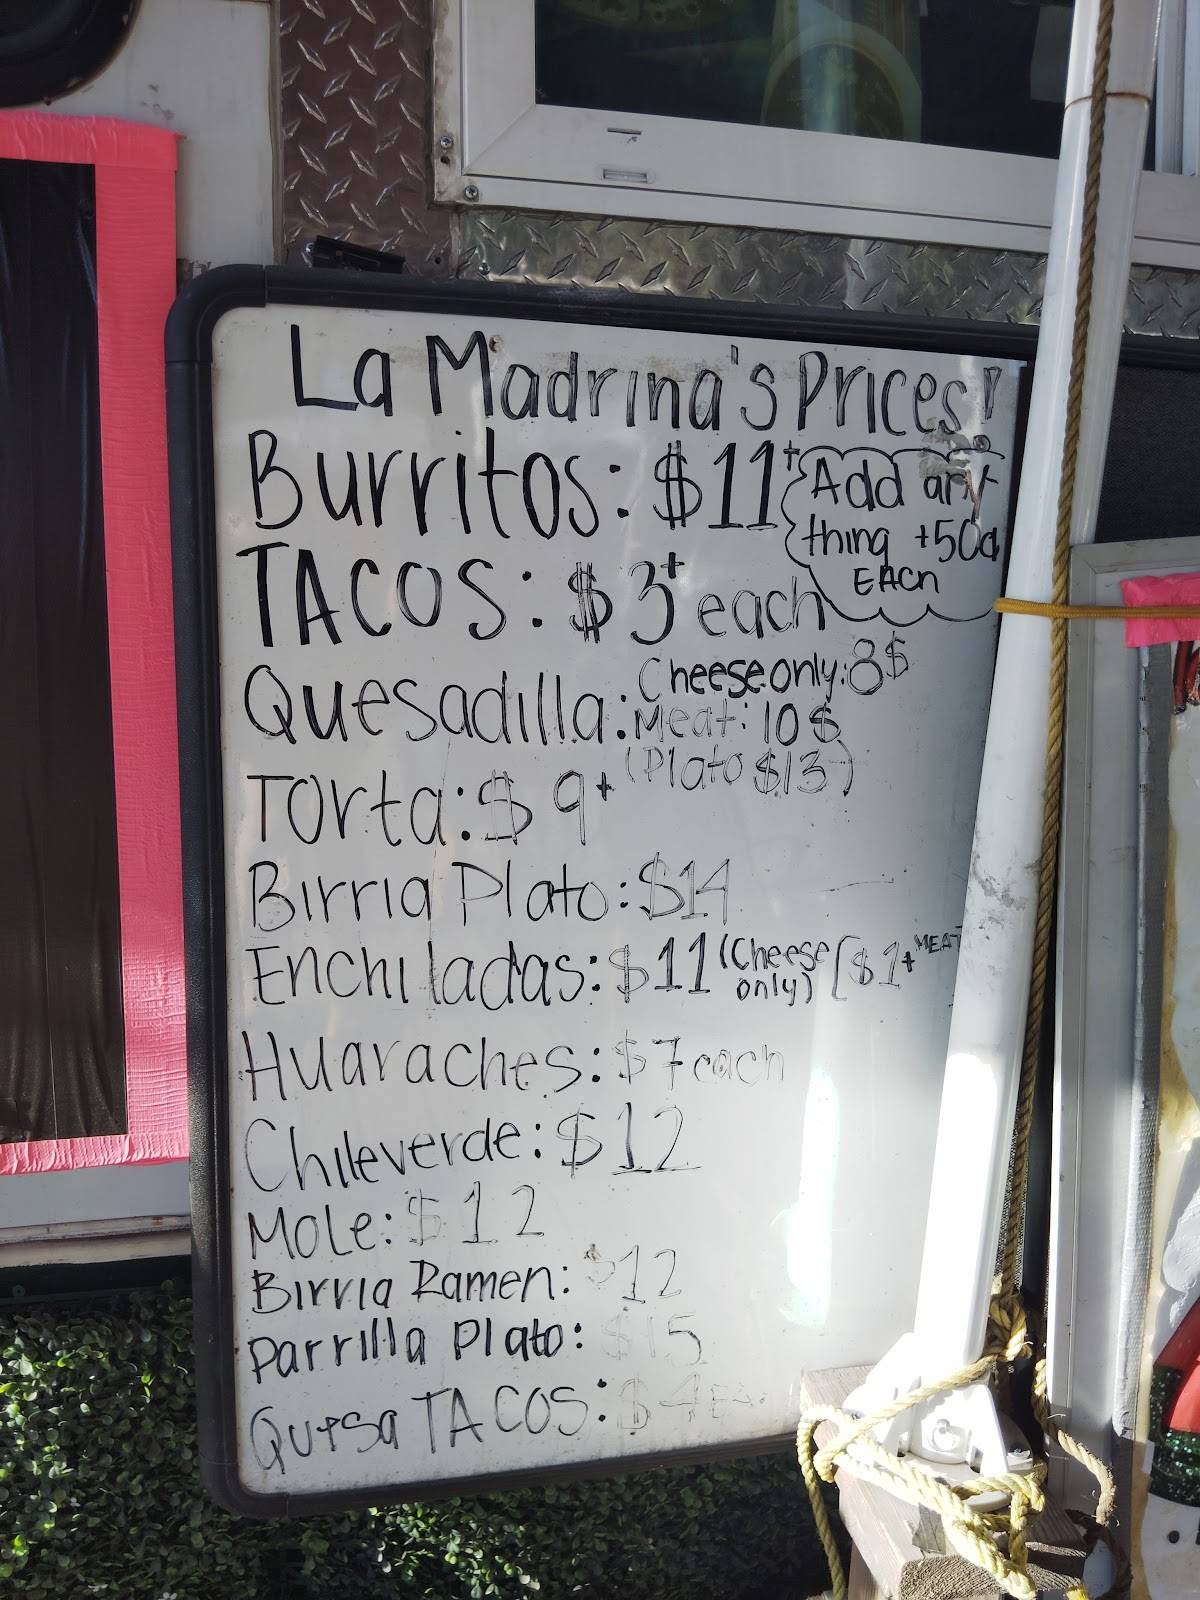 La Madrina's Prices!
Burritos: $11+
Add any
thing +50¢
EACH
TACOS: $3+ each
Quesadilla: Cheese only: 8$
Meat: 10$
(Plato $13)
Torta: $9+
Birria Plato: $14
Enchiladas: $11 (Cheese only) [$1+ MEAT
Huaraches: $7 each
Chileverde: $12
Mole: $12
Birria Ramen: $12
Parrilla Plato: $15
Quesa TACOS: $4 EA.